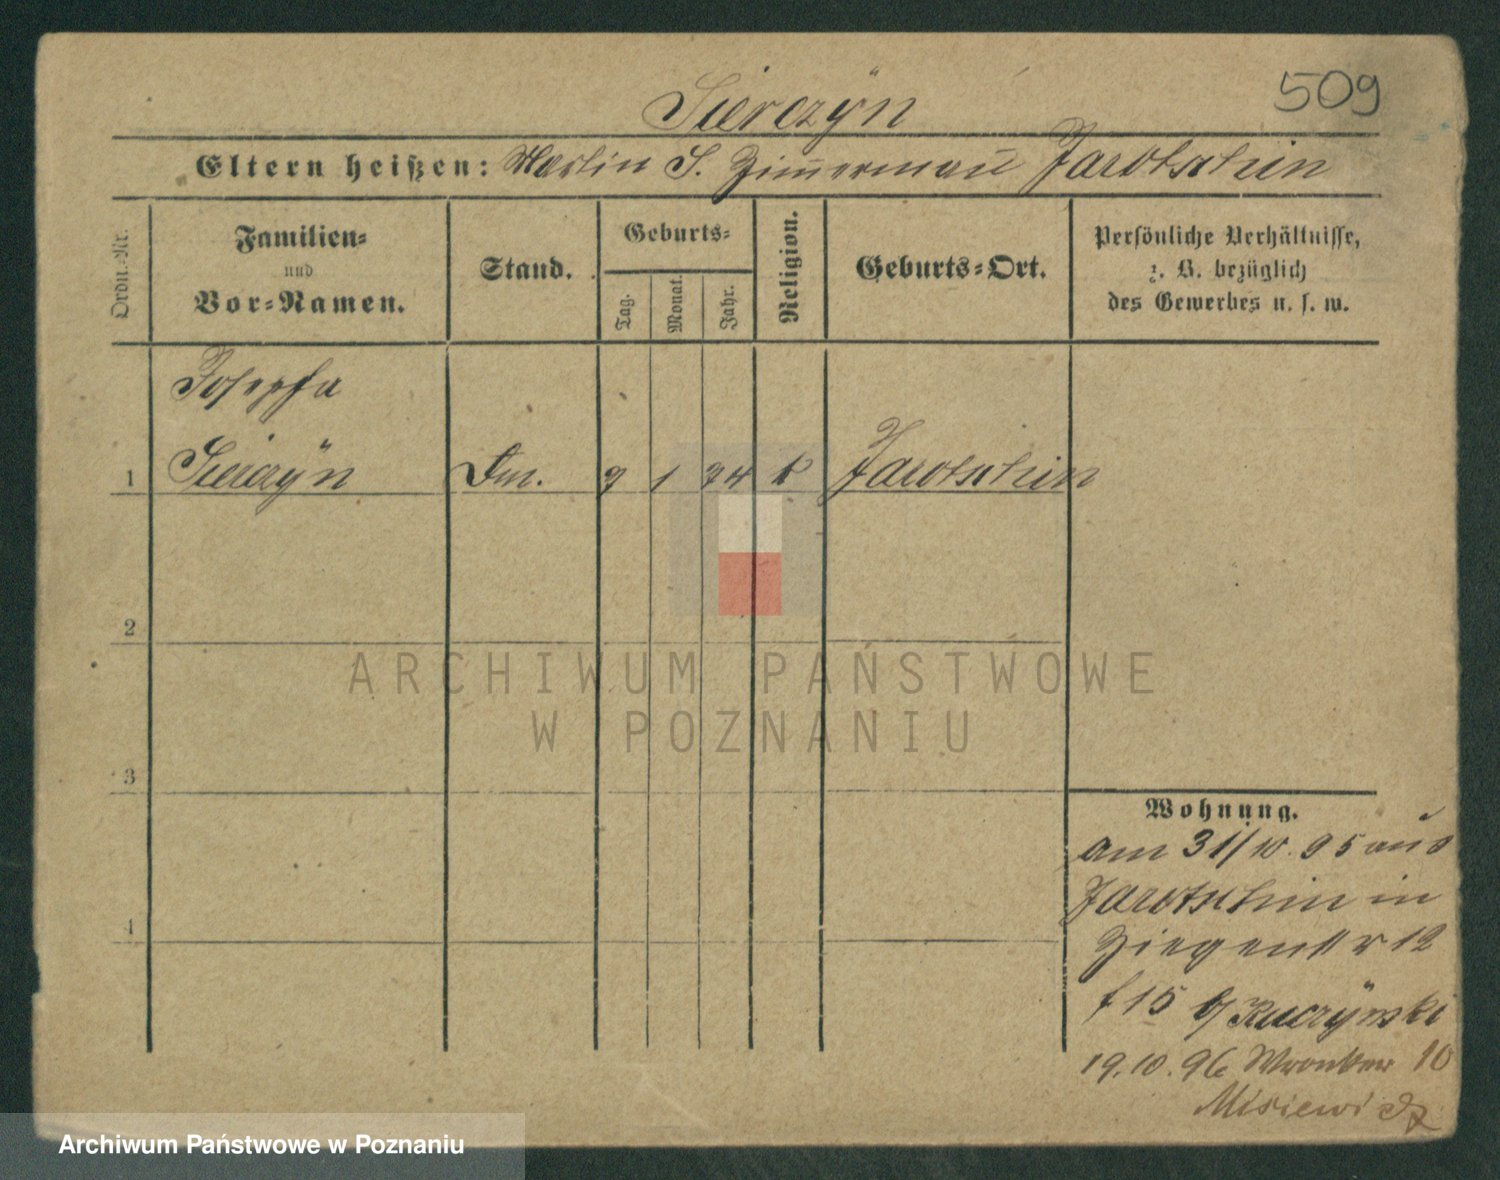 509
Sierczÿn
Eltern heißen: Martin S. Zimmermann Jarotschin
Ordn.-Nr.
Familien-
und
Vor-Namen.
Stand.
Geburts-
Tag.
Monat.
Jahr.
Religion.
Geburts-Ort.
Persönliche Verhältnisse,
z. B. bezüglich
des Gewerbes u. s. w.
Josepha
1 Sierczÿn Dm. 9 1 74 k Jarotschin
2
3
4
Wohnung.
am 31/10. 95 aus
Jarotschin in
Ziegenstr 12
f 15 b/ Kuczÿnski
19.10.96 Wronker 10
Misiewicz
ARCHIWUM PAŃSTWOWE
W POZNANIU
Archiwum Państwowe w Poznaniu